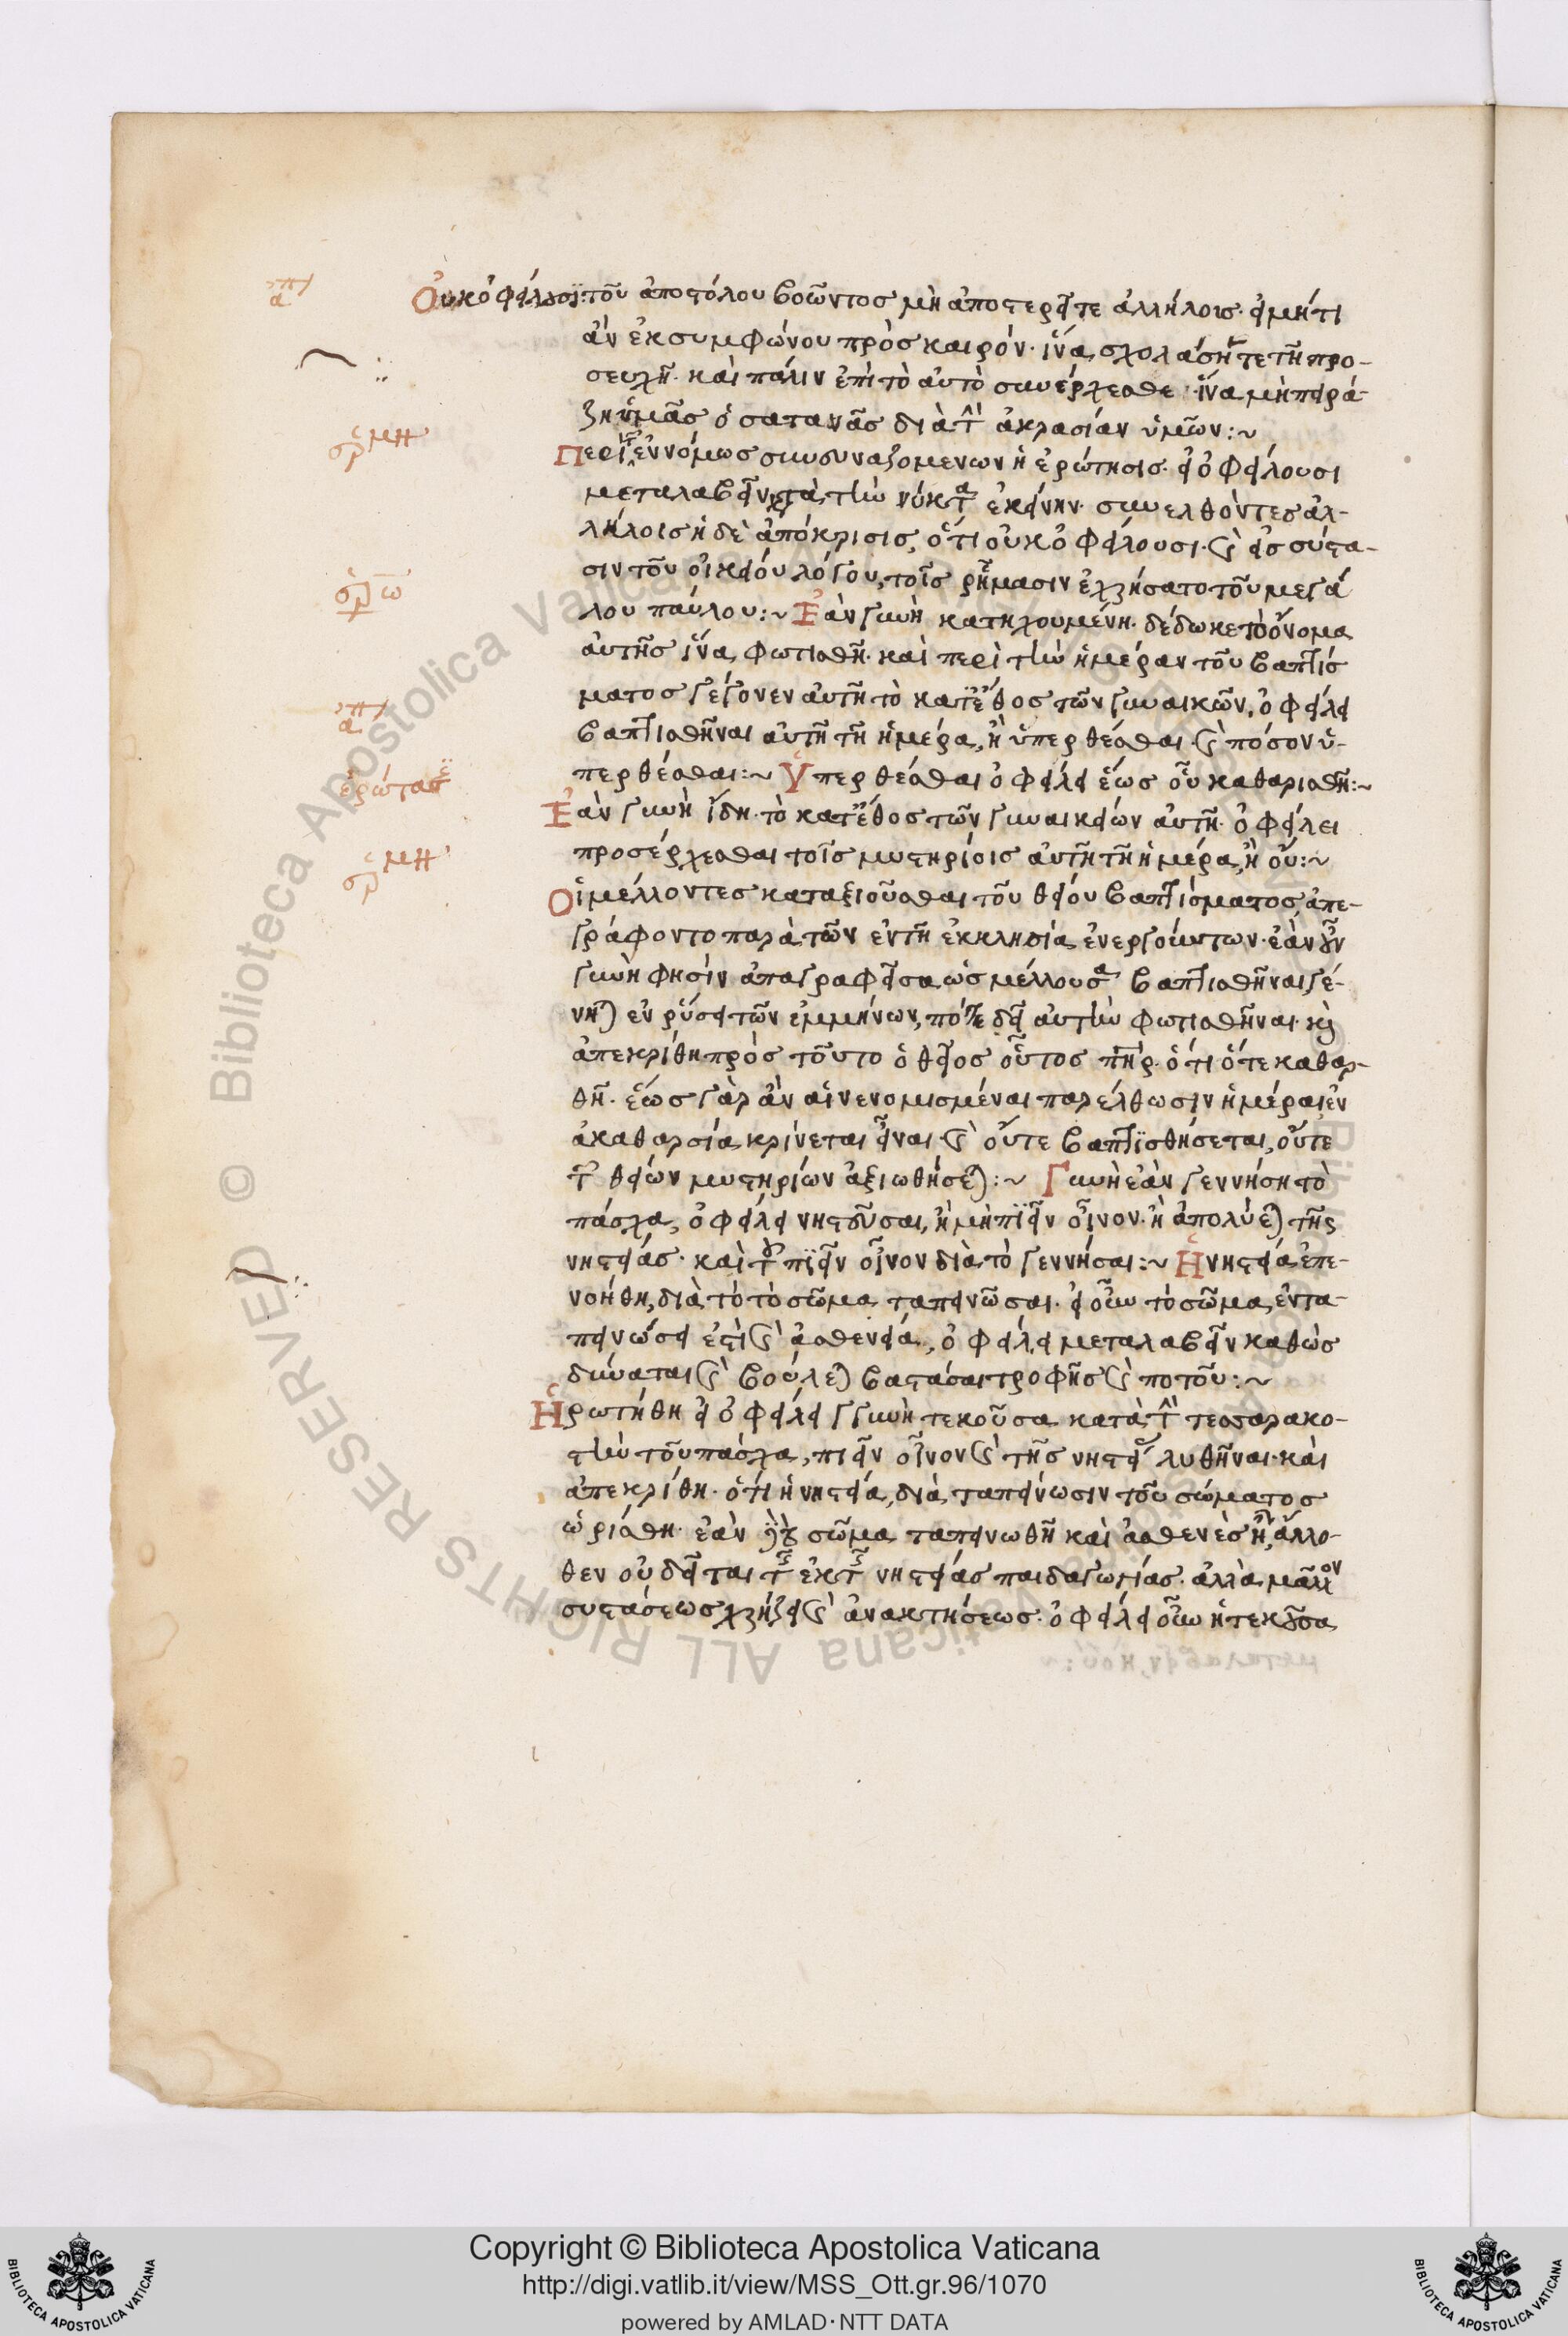 Οὐκ ὀφείλουσι τοῦ ἀποστόλου βοῶντος μὴ ἀποστερεῖτε ἀλλήλοις· εἰ μή τι
ἀν ἐκ συμφώνου πρὸς καιρόν· ἵνα σχολάσητε τῆ προ-
σευχῆ· καὶ πάλιν ἐπὶ τὸ αὐτὸ συνέρχεσθε· ἵνα μὴ πειρά-
ζη ὑμᾶς ὁ σατανᾶς διὰ τὴν ἀκρασίαν ὑμῶν:~
Περὶ τῶν ἐννόμως συνοικαζομενων ἡ ἐρώτησις· εἰ ὀφείλουσι
μεταλαβεῖν κατὰ τὴν νύκτα ἐκείνην· συνελθόντες ἀλ-
λήλοις ἡ δὲ ἀπόκρισις, ὅτι οὐκ ὀφείλουσι· καὶ εἰς σύστα-
σιν τοῦ οἰκείου λόγου, τοῖς ῥήμασιν ἐχρήσατο τοῦ μεγά
λου παύλου:~ Ἐὰν γυνὴ κατηχουμένη· δέδωκε τὸ ὄνομα
αὐτῆς ἵνα φωτισθῆ· καὶ περὶ τὴν ἡμέραν τοῦ βαπτίσ
ματος γέγονεν αὐτῆ τὸ κατ' ἔθος τῶν γυναικῶν, ὀφείλει
βαπτισθῆναι αὐτῆ τῆ ἡμέρα, ἢ ὑπερθέσθαι· καὶ πόσον ὑ-
περθέσθαι:~ Ὑπερθέσθαι ὀφείλει ἕως οὗ καθαρισθῆ:~
Ἐὰν γυνὴ ἴδη· τὸ κατ' ἔθος τῶν γυναικείων αὐτῆ· ὀφείλει
προσέρχεσθαι τοῖς μυστηρίοις αὐτῆ τῆ ἡμέρα, ἢ οὔ:~
Οἱ μέλλοντες καταξιοῦσθαι τοῦ θείου βαπτίσματος, ἀπε-
γράφοντο παρὰ τῶν ἐν τῆ ἐκκλησία ἐνεργούντων· ἐὰν οὖν
γυνὴ φησὶν ἀπογραφεῖσα ὡς μέλλουσα βαπτισθῆναι γέ-
νηται ἐν ῥύσει τῶν ἐμμήνων, πότε δεῖ αὐτὴν φωτισθῆναι· καὶ
ἀπεκρίθη πρὸς τοῦτο ὁ θεῖος οὗτος πῆρ· ὅτι ὅτε καθαρ-
θῆ· ἕως γὰρ ἂν αἱ νενομισμέναι παρέλθωσιν ἡμέραι ἐν
ἀκαθαρσία κρίνεται εἶναι· καὶ οὔτε βαπτϊσθήσεται, οὔτε
τῶν θείων μυστηρίων ἀξιωθήσεται:~ Γυνὴ ἐὰν γεννήση τὸ
πάσχα, ὀφείλει νηστεῦσαι, ἢ μὴ πϊεῖν οἶνον· ἢ ἀπολύεται τῆς
νηστείας· καὶ τοῦ πϊεῖν οἶνον διὰ τὸ γεννήσαι:~ Ἡ νηστεία ἐπε-
νοήθη, διὰ τὸ τὸ σῶμα ταπεινῶσαι· εἰ οὖν τὸ σῶμα ἐν τα-
πεινώσει ἐστὶ καὶ ἀσθενεία, ὀφείλει μεταλαβεῖν καθὼς
δύναται καὶ βούλεται βαστάσαι τροφῆς καὶ ποτοῦ:~
Ἡρωτήθη εἰ ὀφείλει γυνὴ τεκοῦσα κατὰ τὴν τεσσαρακο-
στὴν τοῦ πάσχα, πιεῖν οἶνον καὶ τῆς νηστείας λυθῆναι· καὶ
ἀπεκρίθη· ὅτι ἡ νηστεία, διὰ ταπείνωσιν τοῦ σώματος
ὡρίσθη· ἐὰν σῶμα ταπεινωθῆ καὶ ἀσθενὲς ἦ, ἄλλο-
θεν οὐ δεῖται τῆς ἐκ τῆς νηστείας παιδαγωγίας· ἀλλὰ μᾶλλον
συστάσεως χρήζει καὶ ἀνακτήσεως· ὀφείλει οὖν ἡ τεκοῦσα
Copyright © Biblioteca Apostolica Vaticana
http://digi.vatlib.it/view/MSS_Ott.gr.96/1070
powered by AMLAD·NTT DATA